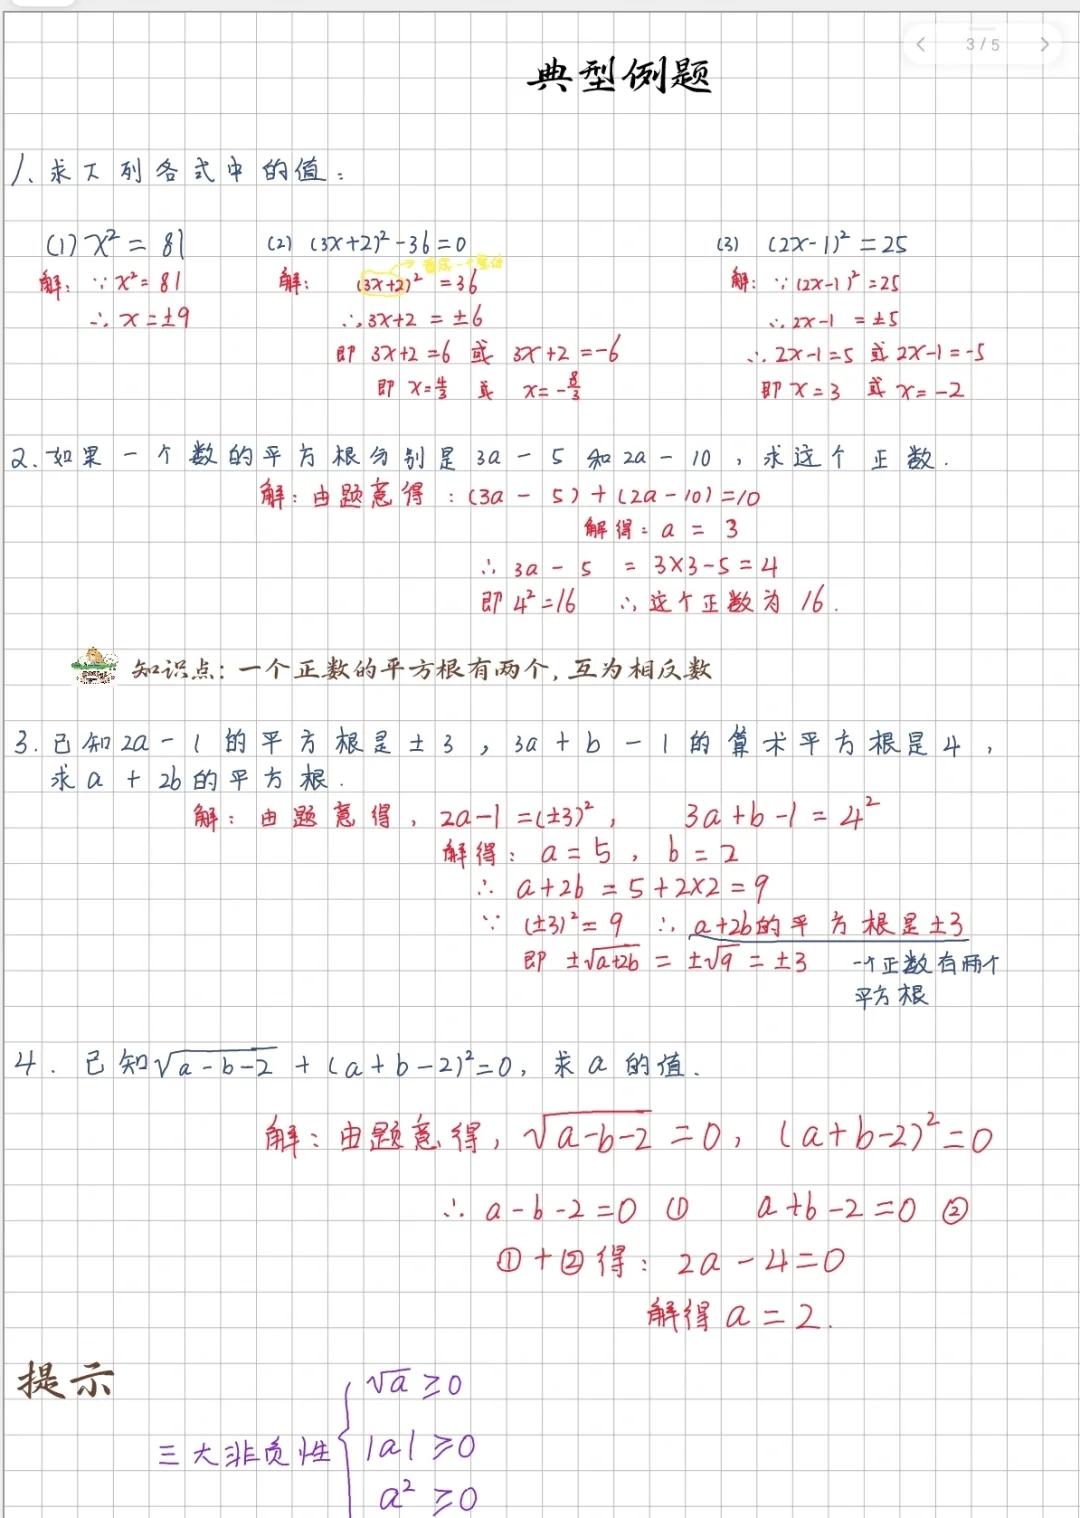 3 / 5
典型例题
1、求下列各式中的值：
(1) x² = 81
(2) (3x+2)² -36=0
(3) (2x-1)² = 25
看成一个整体
解： ∵ x² = 81
解： (3x+2)² = 36
解： ∵ (2x-1)² = 25
∴ x = ±9
∴ 3x+2 = ±6
∴ 2x-1 = ±5
即 3x+2 =6 或 3x+2 = -6
∴ 2x-1=5 或 2x-1=-5
即 x=4/3 或 x= -8/3
即 x=3 或 x=-2
2. 如果一个数的平方根分别是 3a-5 和 2a-10，求这个正数.
解：由题意得：(3a-5)+(2a-10)=10
解得：a = 3
∴ 3a-5 = 3×3-5=4
即 4²=16 ∴ 这个正数为 16.
知识点：一个正数的平方根有两个，互为相反数
3. 已知2a-1的平方根是±3，3a+b-1的算术平方根是4，
求a+2b的平方根.
解：由题意得，2a-1=(±3)²， 3a+b-1=4²
解得：a=5，b=2
∴ a+2b = 5+2×2=9
∵ (±3)²=9 ∴ a+2b的平方根是±3
即 ±√(a+2b) = ±√9 = ±3 一个正数有两个
平方根
4. 已知√(a-b-2) + (a+b-2)²=0，求a的值.
解：由题意得，√(a-b-2) =0，(a+b-2)²=0
∴ a-b-2=0 ① a+b-2=0 ②
①+②得：2a-4=0
解得 a=2.
提示
√a ≥0
三大非负性 |a| ≥0
a² ≥0